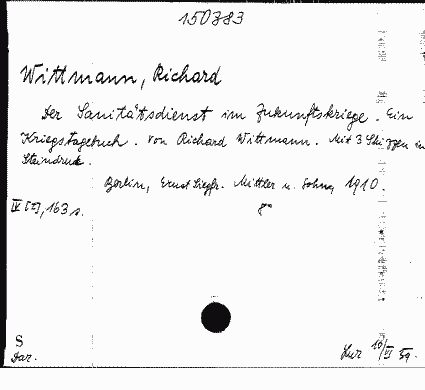 150383
Wittmann, Richard
Der Sanitätsdienst im Zukunftskriege. Ein
Kriegstagebuch. Von Richard Wittmann. Mit 3 Skizzen in
Steindruck.
Berlin, Ernst Siegfr. Mittler u. Sohn, 1910.
IV [2], 163 s. 8°
S
Dar. 10/VI 59.